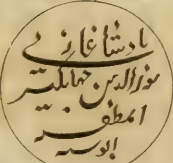 بادشا غازی
نورالدین جهانگیر
المظفر
ابو